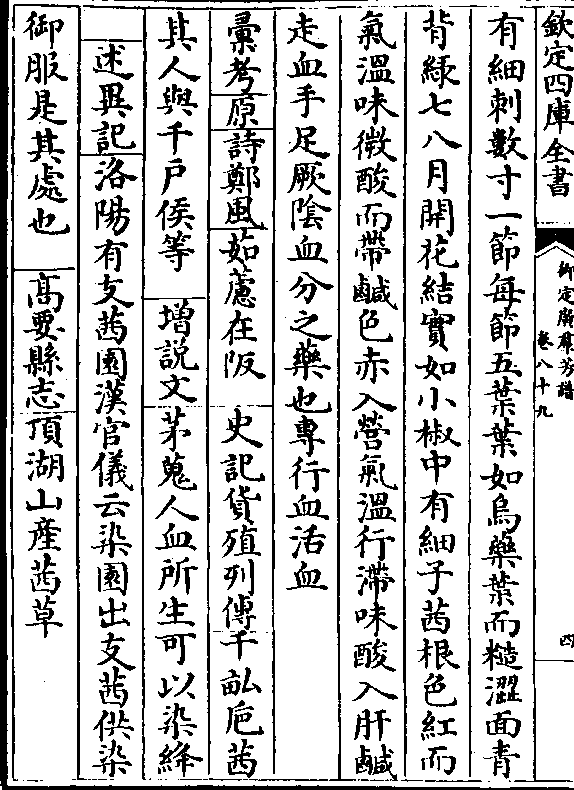 欽定四庫全書
御定廣羣芳譜
卷八十九
四
有細刺數寸一節每節五葉葉如烏藥葉而糙澀面青
背綠七八月開花結實如小椒中有細子茜根色紅而
氣溫味微酸而帶鹹色赤入營氣溫行滯味酸入肝鹹
走血手足厥陰血分之藥也專行血活血
彚考原詩鄭風茹藘在阪 史記貨殖列傳千畝巵茜
其人與千戶侯等 增説文茅蒐人血所生可以染絳
述異記洛陽有支茜園漢官儀云染園出支茜供染
御服是其處也 高要縣志頂湖山産茜草